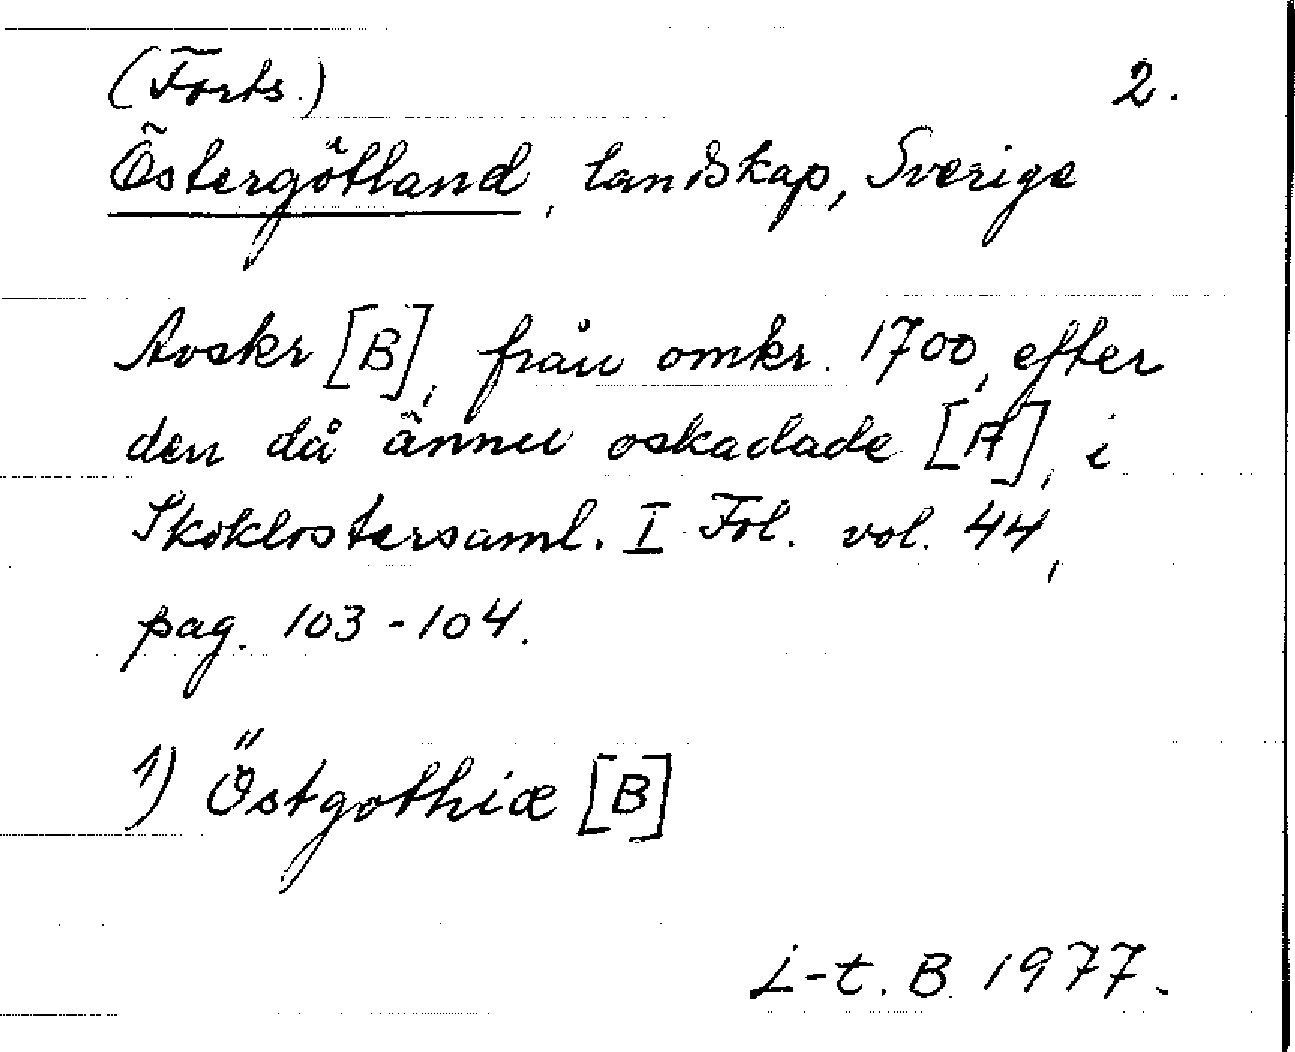 (Forts.) 2.
Östergötland, landskap, Sverige
Avskr [B], från omkr. 1700, efter
den då ännu oskadade [A], i
Skoklostersaml. I Fol. vol. 44,
pag. 103-104.
1) Östgothiæ [B]
L-t. B. 1977.